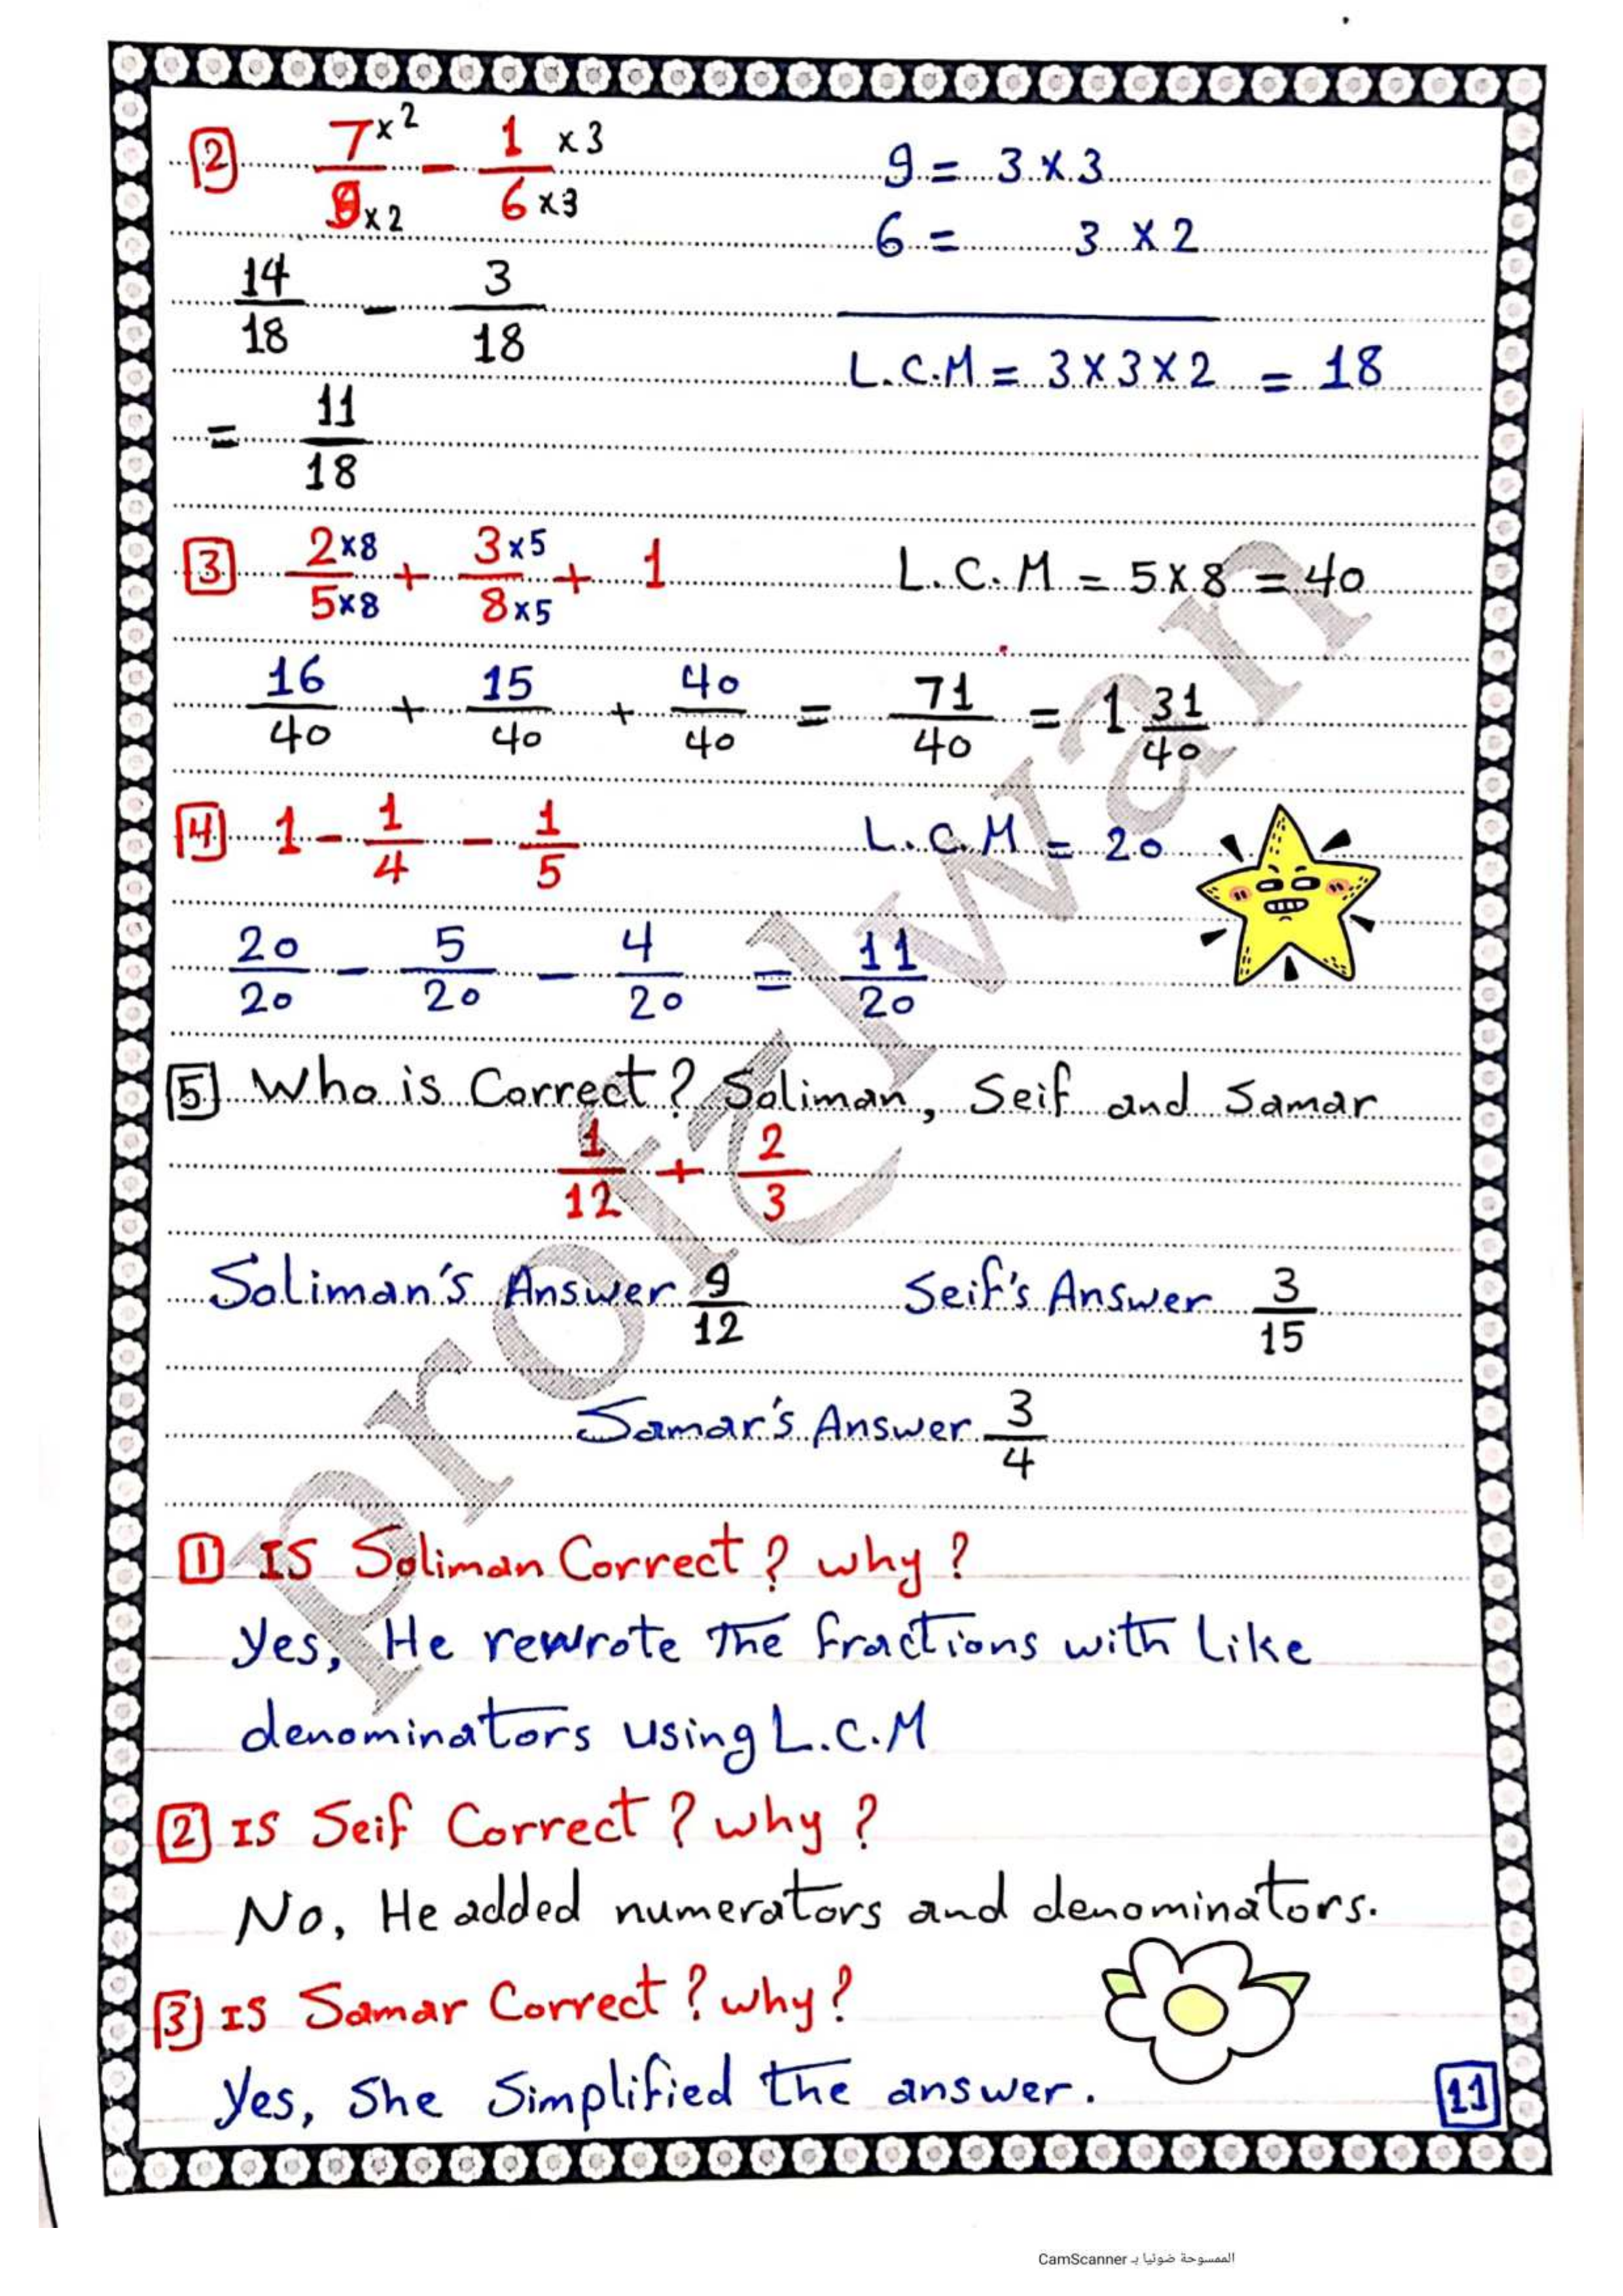 2 7×2/9×2 - 1×3/6×3 9 = 3×3
6 = 3×2
14/18 - 3/18
L.C.M = 3×3×2 = 18
= 11/18
3 2×8/5×8 + 3×5/8×5 + 1 L.C.M = 5×8 = 40
16/40 + 15/40 + 40/40 = 71/40 = 1 31/40
4 1 - 1/4 - 1/5 L.C.M = 20
20/20 - 5/20 - 4/20 = 11/20
5 Who is Correct? Soliman, Seif and Samar
1/12 + 2/3
Soliman's Answer 9/12 Seif's Answer 3/15
Samar's Answer 3/4
1 IS Soliman Correct? why?
yes, He rewrote The fractions with Like
denominators using L.C.M
2 IS Seif Correct? why?
No, He added numerators and denominators.
3 IS Samar Correct? why?
yes, She Simplified the answer.
11
prof Elwan
الممسوحة ضوئيا بـ CamScanner